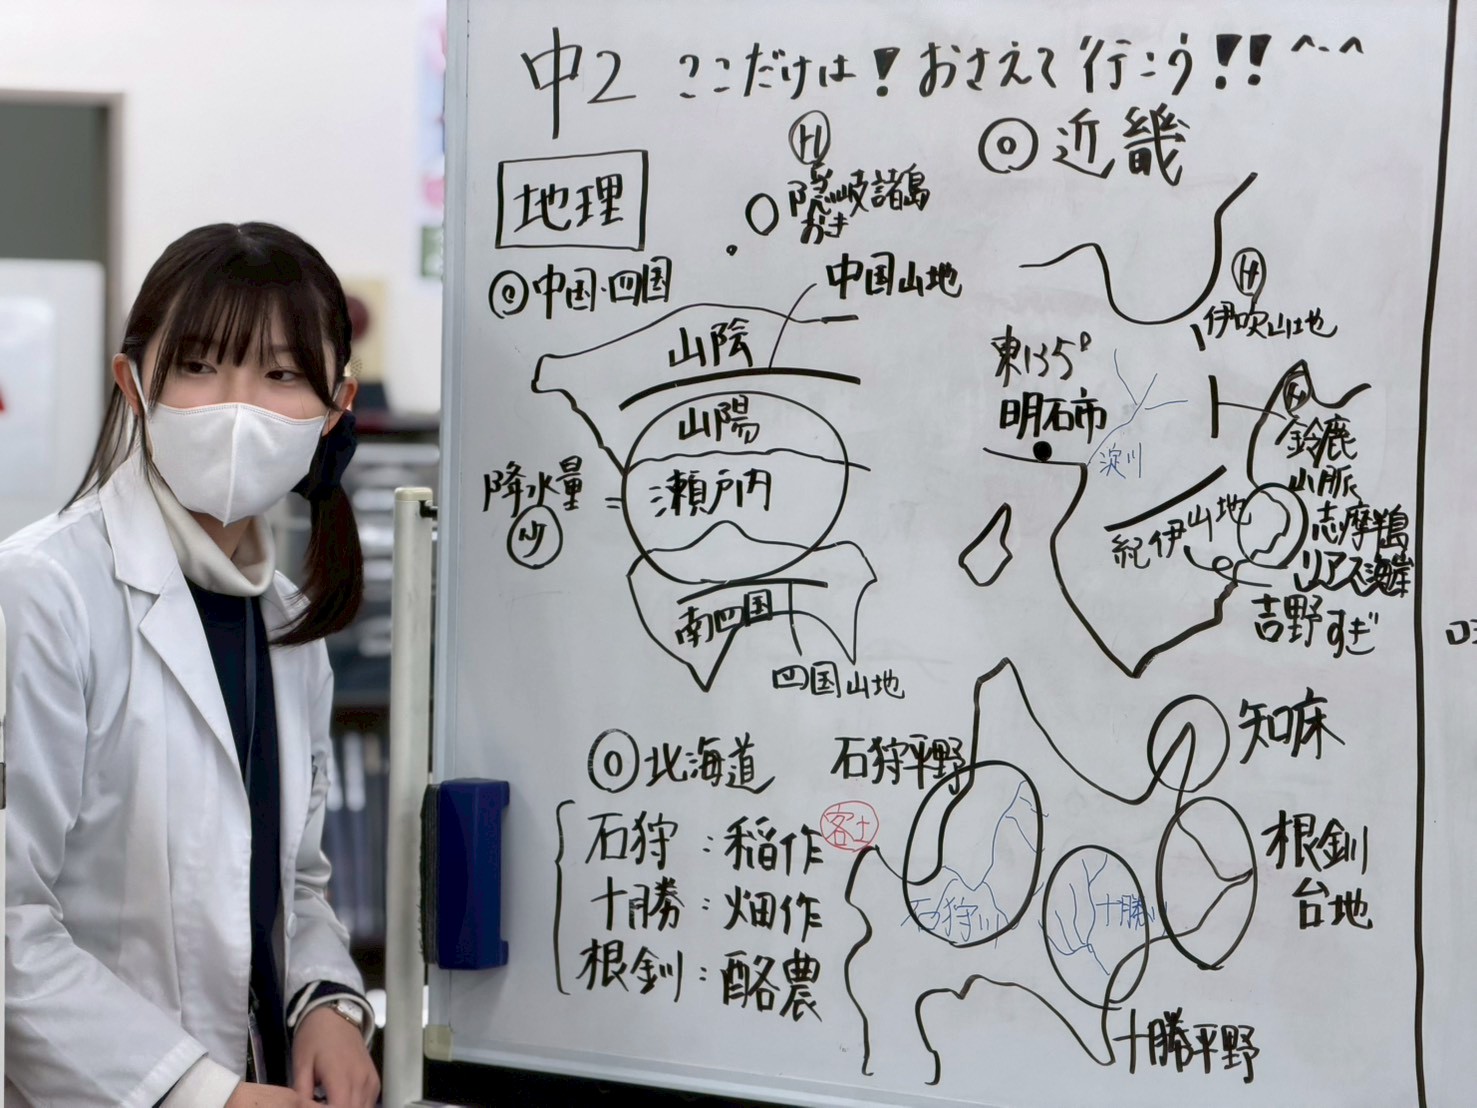 中2 ここだけは!おさえて行こう!! ^-^
地理
◎中国・四国
隠岐諸島
おき
中国山地
山陰
山陽
瀬戸内
降水量
少
=
南四国
四国山地
◎近畿
伊吹山地
東135°
明石市
淀川
鈴鹿
山脈
紀伊山地
志摩半島
リアス海岸
吉野すぎ
◎北海道
石狩:稲作
客土
十勝:畑作
根釧:酪農
石狩平野
石狩川
十勝川
十勝平野
知床
根釧
台地